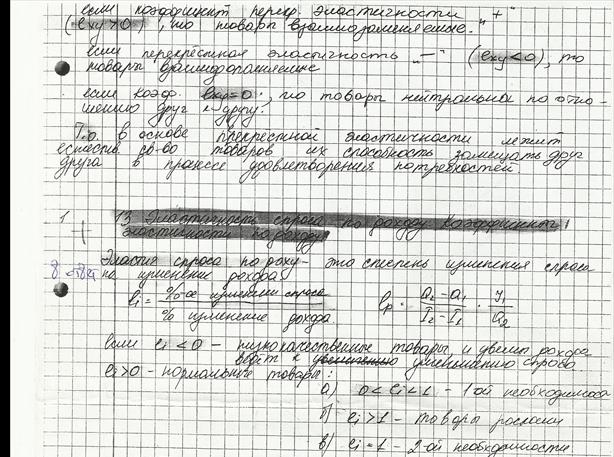 если коэффициент перекр. эластичности „+"
(exy>0), то товары взаимозаменяемые.
если перекрёстная эластичность „—" (exy<0), то
товары взаимодополняемые
если коэф. exy=0, то товары нейтральна по отно-
шению друг к другу.
Т.о. в основе прекрестной эластичности лежит
естеств. св-во товаров их способность замещать друг
друга в процессе удовлетворения потребностей
1 13 Эластичность спроса по доходу Коэффициент
эластичности по доходу
Эластич спроса по доху - эта степень изменения спроса
на изменении дохода
ei = %-ое изменении спроса / % изменение дохода. ep = Q2-Q1 / I2-I1
если ei <0 - низкокачественные товары и дохода
ведёт к увеличению уменьшению спроса
ei>0 - нормальные товары:
а) 0<ei<1 - 1-ой необходимос
б) ei>1 - товары роскоши
в) ei=1 - 2-ой необходимости.